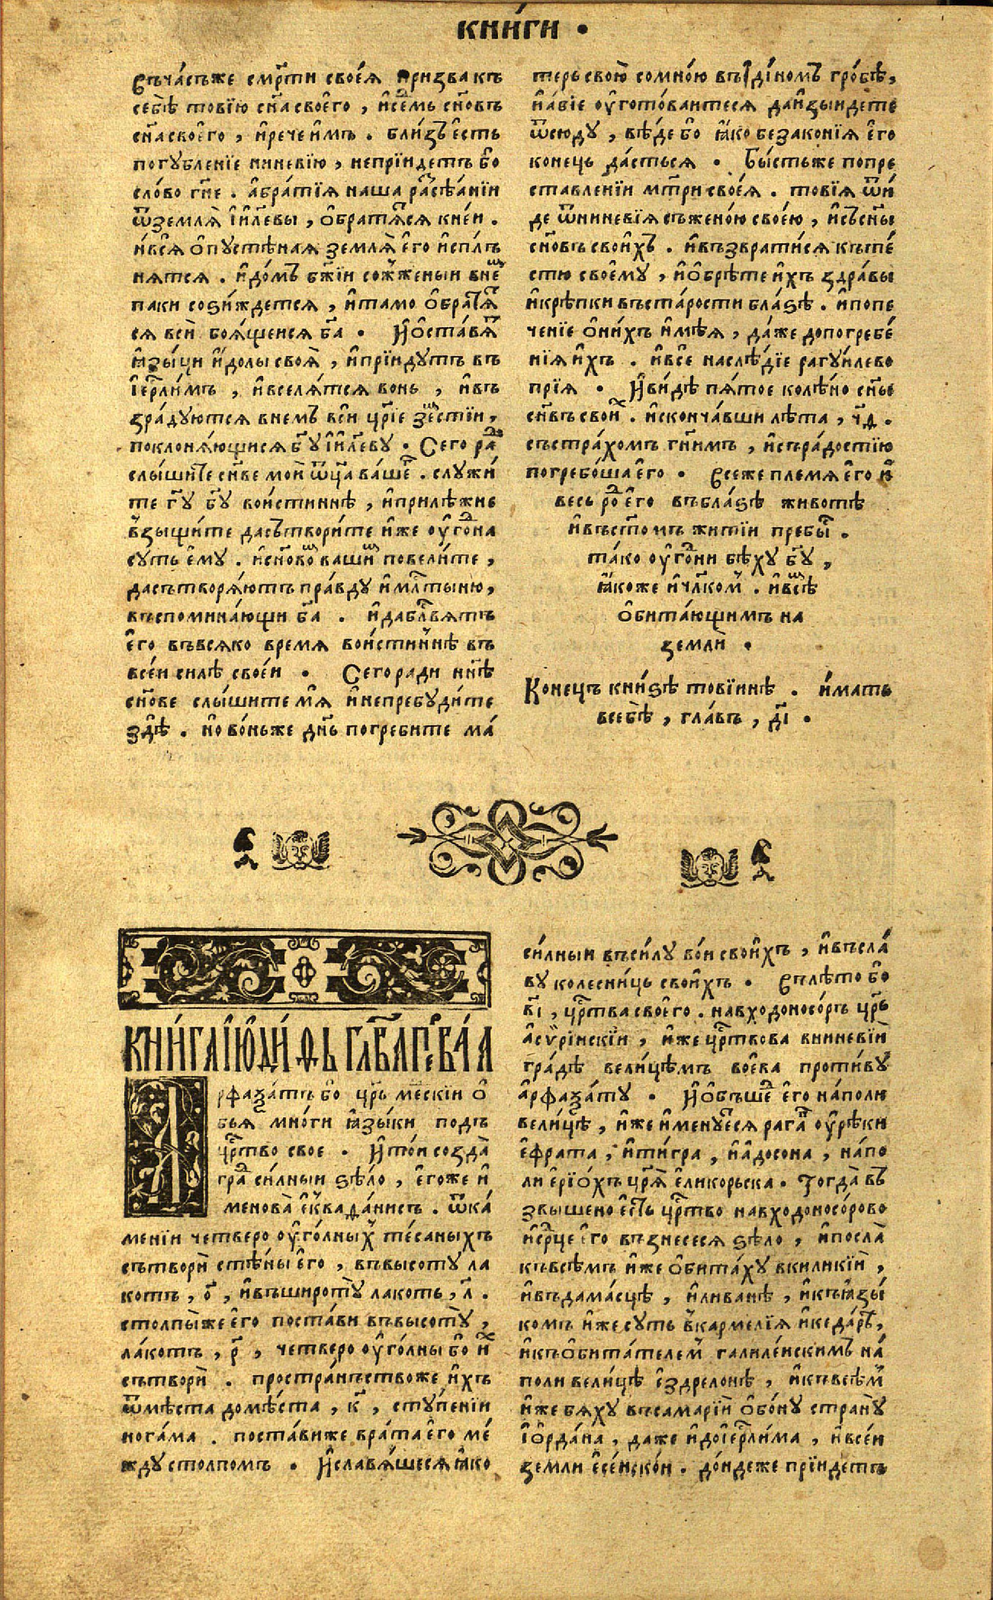 кни́ги .
Въча́съже сме́рти своея̀ призва къ
себѣ̀ товїю сн҃а своего̀ , и҆ се́дмь сн҃овъ
сн҃а своего , и҆рече и҆мъ . бли́зъ є҆сть
погубленїе ниневїю , непрїидетъ бо
сло́во гн҃е . а҆бра́тїя наша разсѣѧнїи
ѿземля̀ і҆и҃левы , ѻ҆братѧ́тся кне́и .
и҆вся̀ ѻ҆пустѣ́ная земля̀ є҆го и҆спл҃ъ
нятся . и҆до́мъ бж҃їи сожже́ныи вне́
паки сози́ждется , и҆тамо ѻ҆братя́т
ся вси̏ боя́щеися бг҃а . И҆ѻ҆ста́вят
ꙗ҆зы́цы и҆́долы своя̀ , и҆прїидутъ въ
і҆ер҇ли́мъ , и҆вселя́тся вонь , и҆въ
зра́дуются внемъ вси цр҃їе зе́мстїи ,
поклоня́ющися бг҃у і҆и҃леву . Сего ра́д
слы́шите сн҃ве мои̏ ѿц҃а вашего . служи́
те гд҇у бг҃у вои́стиннѣ , и҆прилѣ́жне
взыщи́те дасътвори́те и҆же оу҆го́дна
суть є҆му̀ . и҆сн҃овом ва́шим повели́те ,
дасътворя́ютъ пра́вду и҆мл҇тыню ,
въспомина́ющи бг҃а . и҆дабл҇вятъ
є҆го въвсяко время вои́стиннѣ въ
все́и силѣ своеи . Сего ради нн҃ѣ
сн҃ове слы́шите мя̀ и҆непребу́дите
здѣ̀ . но во́ньже дн҃ь погребите ма́
терь свою̀ со мно́ю въє҆ди́номъ гро́бѣ ,
и҆а҆бїе оу҆гото́ваитеся даи҆зы́идете
ѿсю́ду , вѣ́де бо ꙗ҆́ко безако́нїя є҆го
конець да́сться . Бы́стьже попре
ставле́нїи мт҃ри своея̀ . товїя ѿи́
де ѿниневїя съжено́ю свое́ю , и҆съ сн҃ы
сн҃овъ свои́хъ . и҆възврати́ся къте́
стю своему , и҆ѻ҆брѣ́те и҆́хъ здра́вы
и҆крѣ́пки въста́рости бла́зѣ . и҆попе
че́нїе ѻ҆ни́хъ и҆мѣ́я , да́же допогребе́
нїя и҆́хъ . и҆все̏ наслѣ́дїе рагуи́лево
прїя . И҆ви́дѣ пя́тое колѣ́но сн҃ы
сн҃въ свои́х . и҆сконча́вши лѣ́та , ч҃д .
състра́хомъ гн҃имъ , и҆съра́достїю
погребо́ша є҆го . Все́же племя є҆го и҆
весь ро́д є҆го въбла́зѣ животѣ̀
и҆въст҃омъ житїи пребы́ст .
та́ко оу҆го́дни бѣ́ху бг҃у ,
ꙗ҆́коже и҆чл҃ком . и҆всѣ́м
ѻ҆бита́ющимъ на
земли̏ .
Коне́цъ кни́зѣ товїинѣ . и҆́мать
всебѣ̀ , гла́въ , д҃і .
КНИ́ГА І҆Ю҆ДИ́ѲЬ ГЛВА̀ ПЕ́РВАЯ
Арфаѯатъ бо цр҃ь ме́дскїи ѻ҆
бья̀ мно́ги ꙗ҆зы́ки подъ
цр҇тво свое . И҆то́и созда̀
гра́д си́лныи ѕѣло̀ , є҆го́же и҆
менова̀ є҆кватанисъ . ѿка́
мени̏ четверо оу҆го́лных те́саныхъ
сътвори̏ стѣ́ны є҆го , въвысоту̀ ла
ко́тъ , о҃ , и҆въширотꙋ̀ лакотъ , л҃ .
столпы́же є҆го поста́ви въвысоту ,
ла́котъ , р҃ , четверо оу҆го́лны бо и҆х
сътвори̏ . простра́нъствоже и҆́хъ
ѿмѣ́ста домѣ́ста , к҃ , ступе́нїи
нога́ма . поста́виже врата̀ є҆го ме́
жду столпо́мъ . И҆сла́вяшеся ꙗ҆ко
си́лныи въси́лу во́и свои́хъ , и҆въсла́
ву колесни́ць свои́хъ . Въ лѣ́то бо
в҃і , цр҇тва своего̀ . навходоносо́ръ цр҃ь
а҆сѵрїискїи , и҆́же цр҇твова вниневїи
гра́дѣ вели́цемъ воева проти́ву
а҆рфаѯа́ту . И҆ѻ҆бъше́д є҆го напо́ли
вели́цѣ , и҆́же и҆мену́еся рага̀в оу҆рѣ́ки
є҆фра́та , и҆ти́гра , и҆а҆досо́на , напо́
ли є҆рїо́хъ цр҃я̀ є҆ликорьска . Тогда̀ въ
звы́шено є҆сть цр҇тво навходоносо́рово
и҆ср҇це є҆го възнесеся ѕѣло̀ , и҆посла̀
къвсѣмъ и҆́же ѻ҆бита́ху вкиликїи̏ ,
и҆въдама́сцѣ , и҆лива́нѣ , и҆къꙗ҆зы́
комъ и҆́же суть вкармелїя и҆кеда́рст ,
и҆къѻ҆бита́телем галиле́искимъ на́
поли вели́цѣ є҆здрелонѣ , и҆къвсѣм
и҆́же бя́ху въсамарїи̏ ѻ҆бо́ну страну̀
і҆ѻ҆рда́на , да́же и҆доі҆ер҇ли́ма , и҆все́и
земли̏ є҆се́иско́и . до́ндеже прїи́детъ